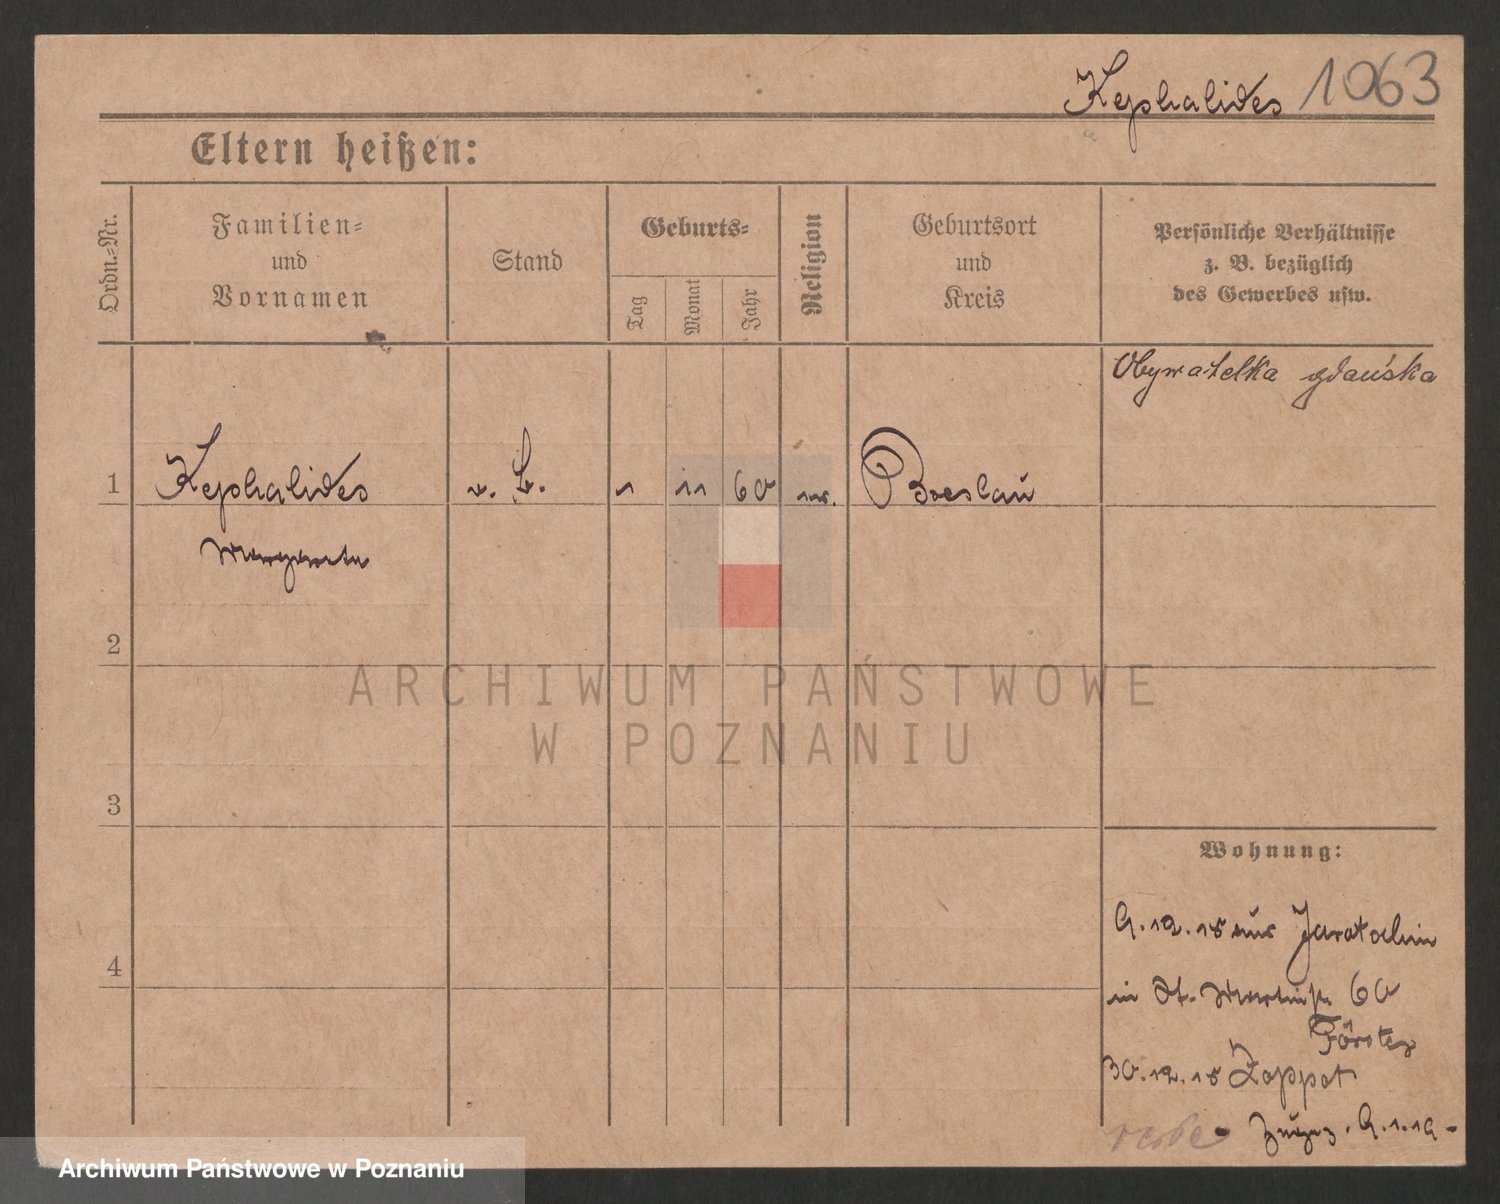 Kephalides 1063
Eltern heißen:
Ordn.=Nr.
Familien=
und
Vornamen
Stand
Geburts=
Tag
Monat
Jahr
Religion
Geburtsort
und
Kreis
Persönliche Verhältnisse
z. B. bezüglich
des Gewerbes usw.
Obywatelka gdańska
1 Kephalides 1 11 60 Breslau
Margarete
2
ARCHIWUM PAŃSTWOWE
W POZNANIU
3
Wohnung:
9.12.18 aus Jarotschin
4
in St. Martinstr 60
Förster
30.12.18 Zoppot
9.1.19
Archiwum Państwowe w Poznaniu